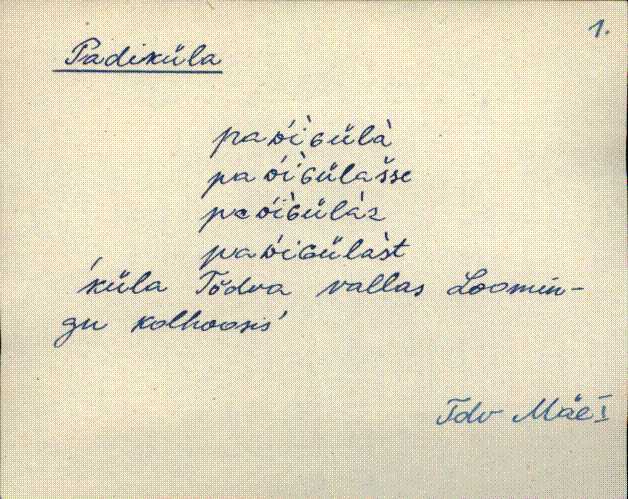 1.
Padiküla
paᴅ́ìɢülà
paᴅ́ìɢülašse
paᴅ́ìɢülàz
paᴅ́iɢülàst
'küla Tõdva vallas Loomin-
gu kolhoosis'
Tdv Mäe I